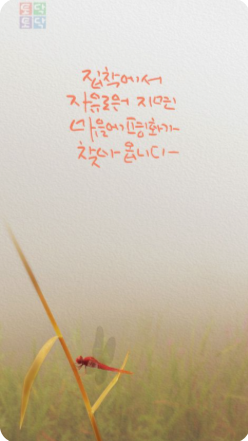 토닥
토닥
집착에서
자유로워 지면
마음에 평화가
찾아 옵니다